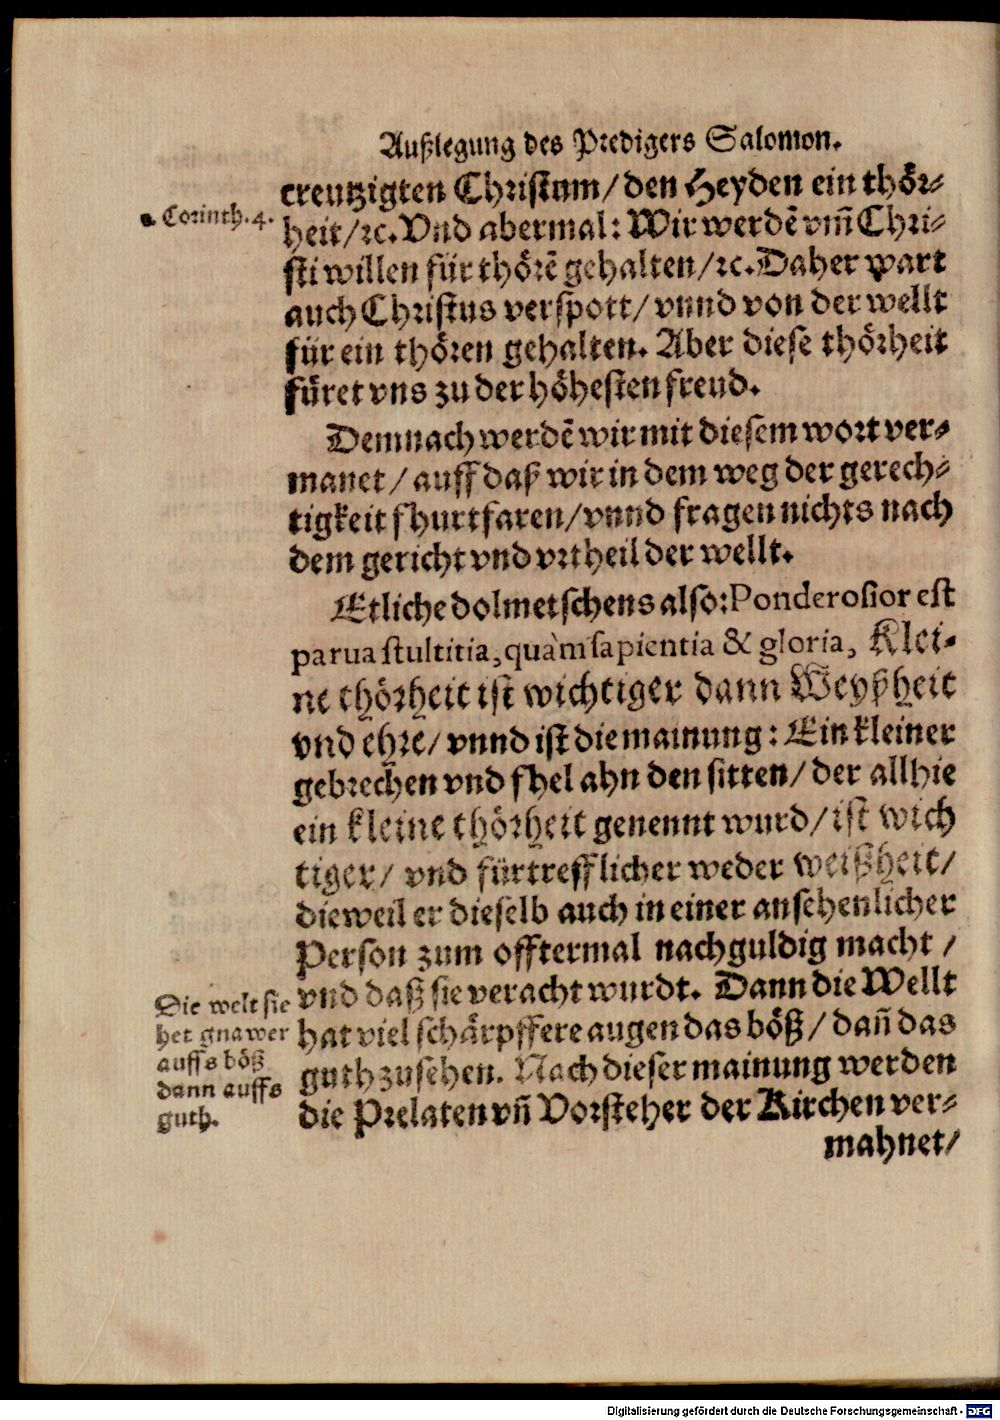 Außlegung des Predigers Salomon.
creutzigten Christum/den Heyden ein thör-
a. Corinth. 4.
heit/ꝛc. Vnd abermal: Wir werdẽ vm̃ Chri-
sti willen für thörẽ gehalten/ꝛc. Daher wart
auch Christus verspott/ vnnd von der wellt
für ein thören gehalten. Aber diese thörheit
füret vns zu der höhesten freud.
Demnach werdẽ wir mit diesem wort ver-
manet / auff daß wir in dem weg der gerech-
tigkeit fhurtfaren/vnnd fragen nichts nach
dem gericht vnd vrtheil der wellt.
Etliche dolmetschens also: Ponderosior est
parua stultitia, quàm sapientia & gloria, Klei-
ne thörheit ist wichtiger dann Weyßheit
vnd ehre/ vnnd ist die mainung: Ein kleiner
gebrechen vnd fhel ahn den sitten/ der allhie
ein kleine thörheit genennt wurd/ ist wich
tiger/ vnd fürtrefflicher weder weißheit/
dieweil er dieselb auch in einer ansehenlicher
Person zum offtermal nachguldig macht /
vnd daß sie veracht wurdt. Dann die Wellt
hat viel schärpffere augen das böß / dañ das
guth zusehen. Nach dieser mainung werden
die Prelaten vñ Vorsteher der Kirchen ver-
Die welt sie
het gnawer
auffs böß
dann auffs
guth.
mahnet/
Digitalisierung gefördert durch die Deutsche Forschungsgemeinschaft - DFG